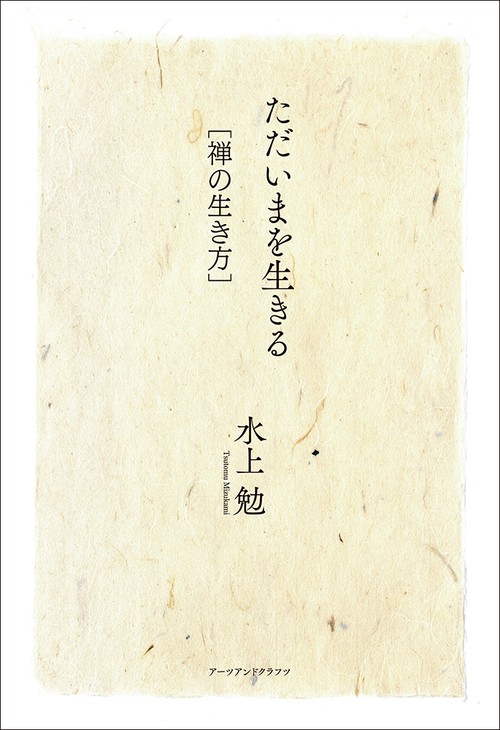 ただいまを生きる
［禅の生き方］
水上 勉
Tsutomu Mizukami
アーツアンドクラフツ